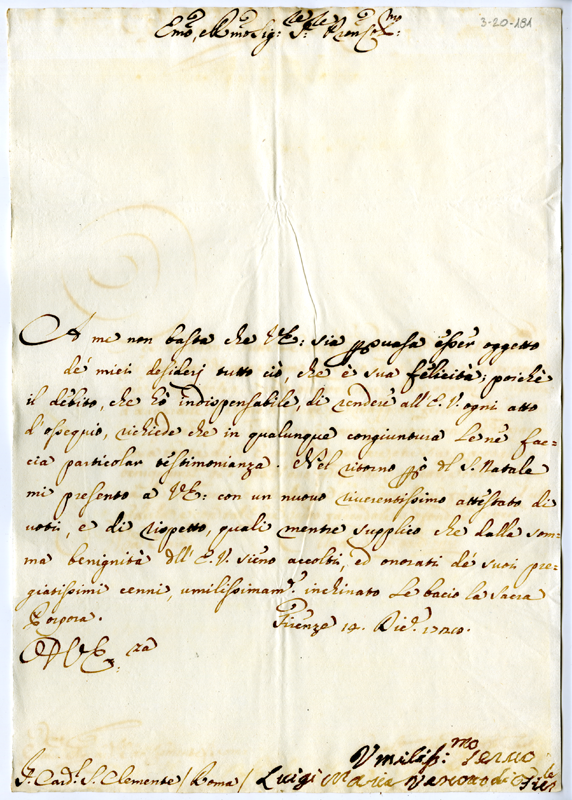 3-20-181
Emo, e Rmo Sig: Pron Col:mo
A me non basta che VE: sia persuasa esser oggetto
de' miei desiderj tutto ciò, che è sua felicità; poichè
il debito, che hò indispensabile, di rendere all'E.V. ogni atto
d'ossequio, richiede che in qualunque congiuntura Le ne fac=
cia particolar testimonianza. Nel ritorno però del S. Natale
mi presento à VE: con un nuovo riverentissimo attestato di
voti, e di rispetto, quali mentre supplico che dalla som=
ma benignità dell'E.V. sieno accolti, ed onorati de' suoi pre=
giatissimi cenni, umilissimam.e inchinato Le bacio la Sacra
Porpora. Firenze 14. Dic.e
A VE za
Umiliss:mo Servo
Luigi Maria di
S. Card.l S. Clemente / Roma /